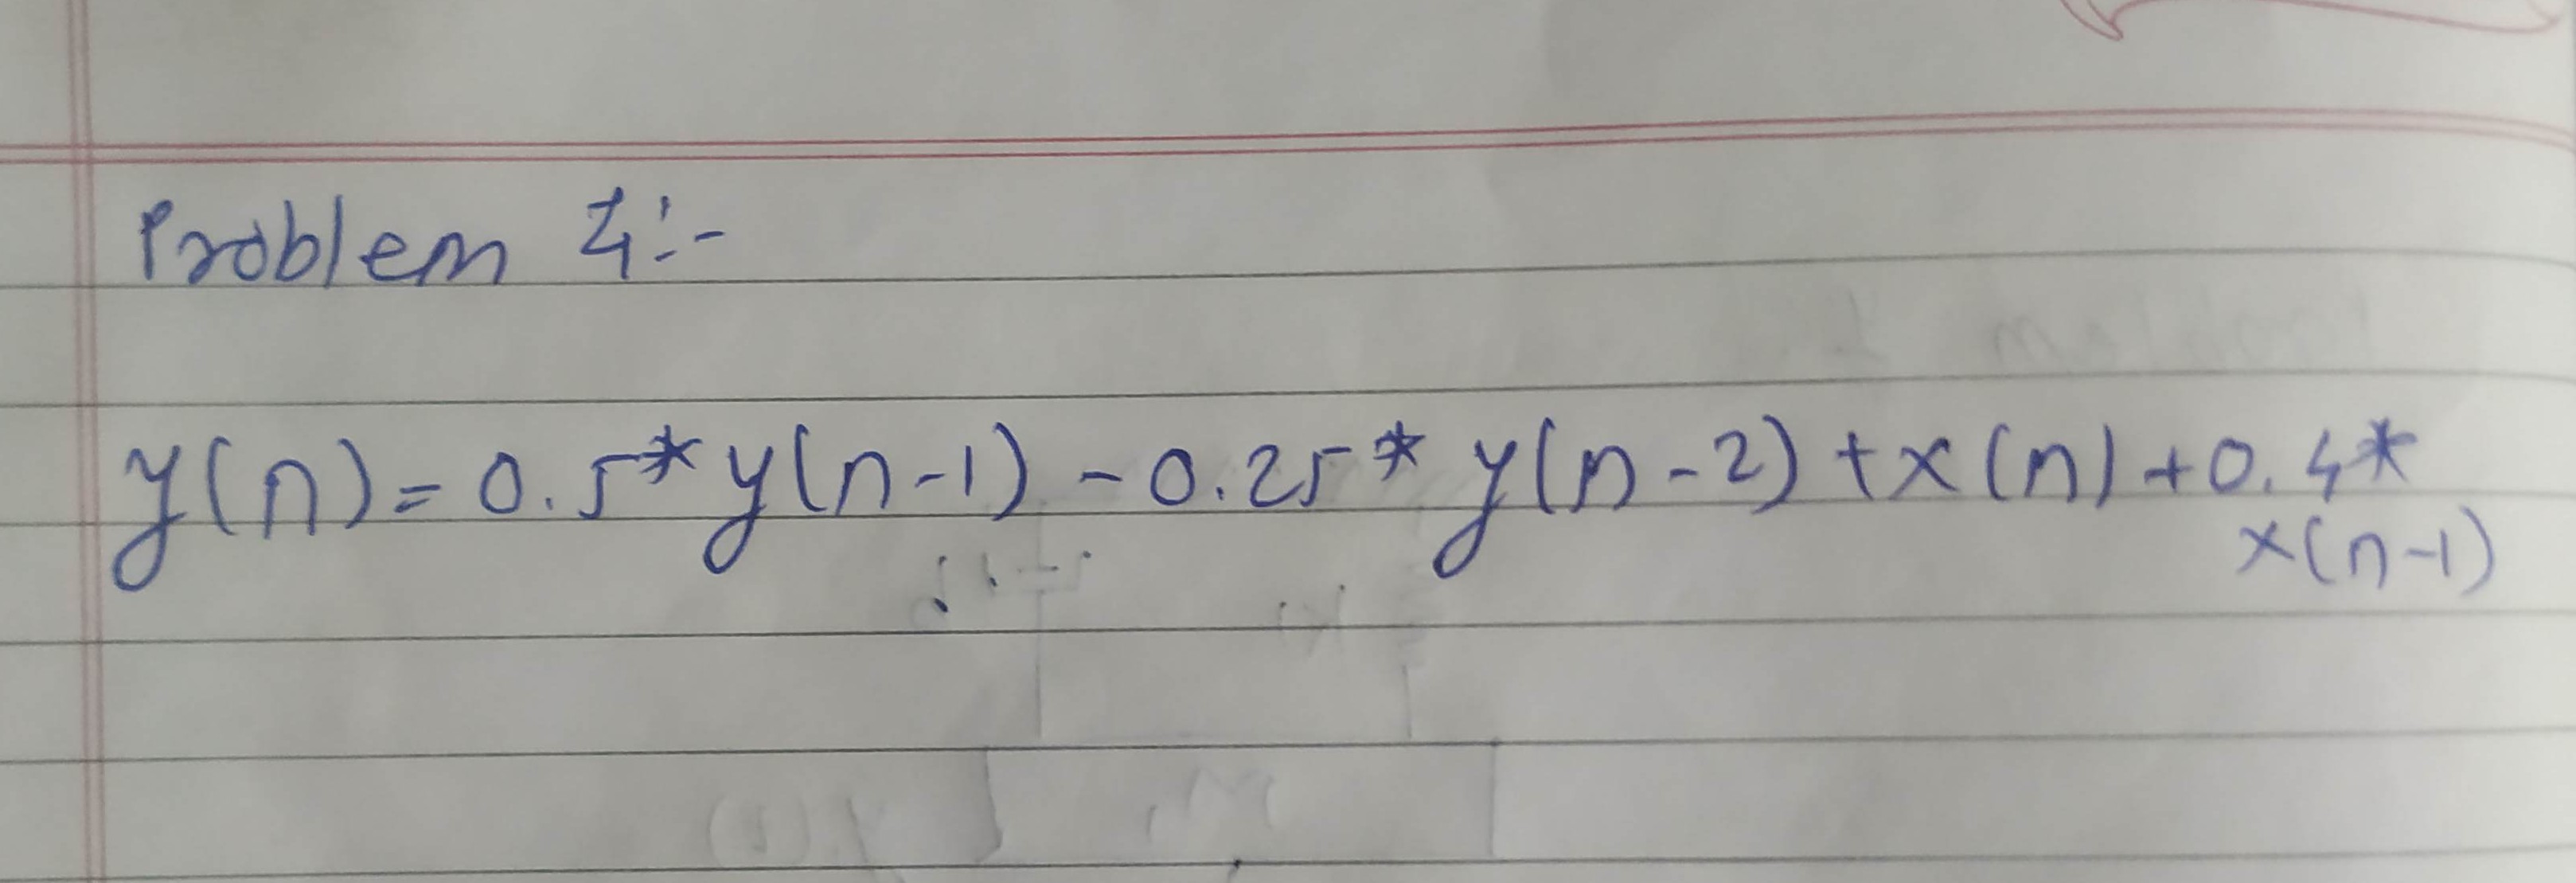 Problem 4:-
y(n)= 0.5*y(n-1) - 0.25* y(n-2) +x(n) +0.4*
x(n-1)